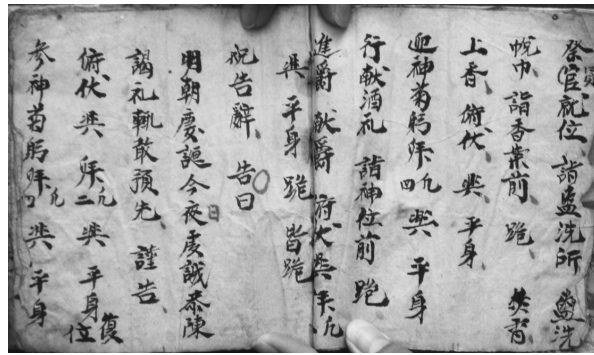 祭官就位 詣盥洗所 盥洗
帨巾 詣香案前 跪 焚香
上香 俯伏 興 平身
迎神菊躬拜凡四 興 平身
行献酒礼 詣神位前 跪
進爵 献爵 俯伏興拜凡
興 平身 跪 皆跪
祝告辭 告曰
明朝慶謳今夜虔誠恭陳
謁礼輒敢預先 謹告
俯伏 興 拜凡二 興 平身 復位
参神菊躬拜凡四 興 平身